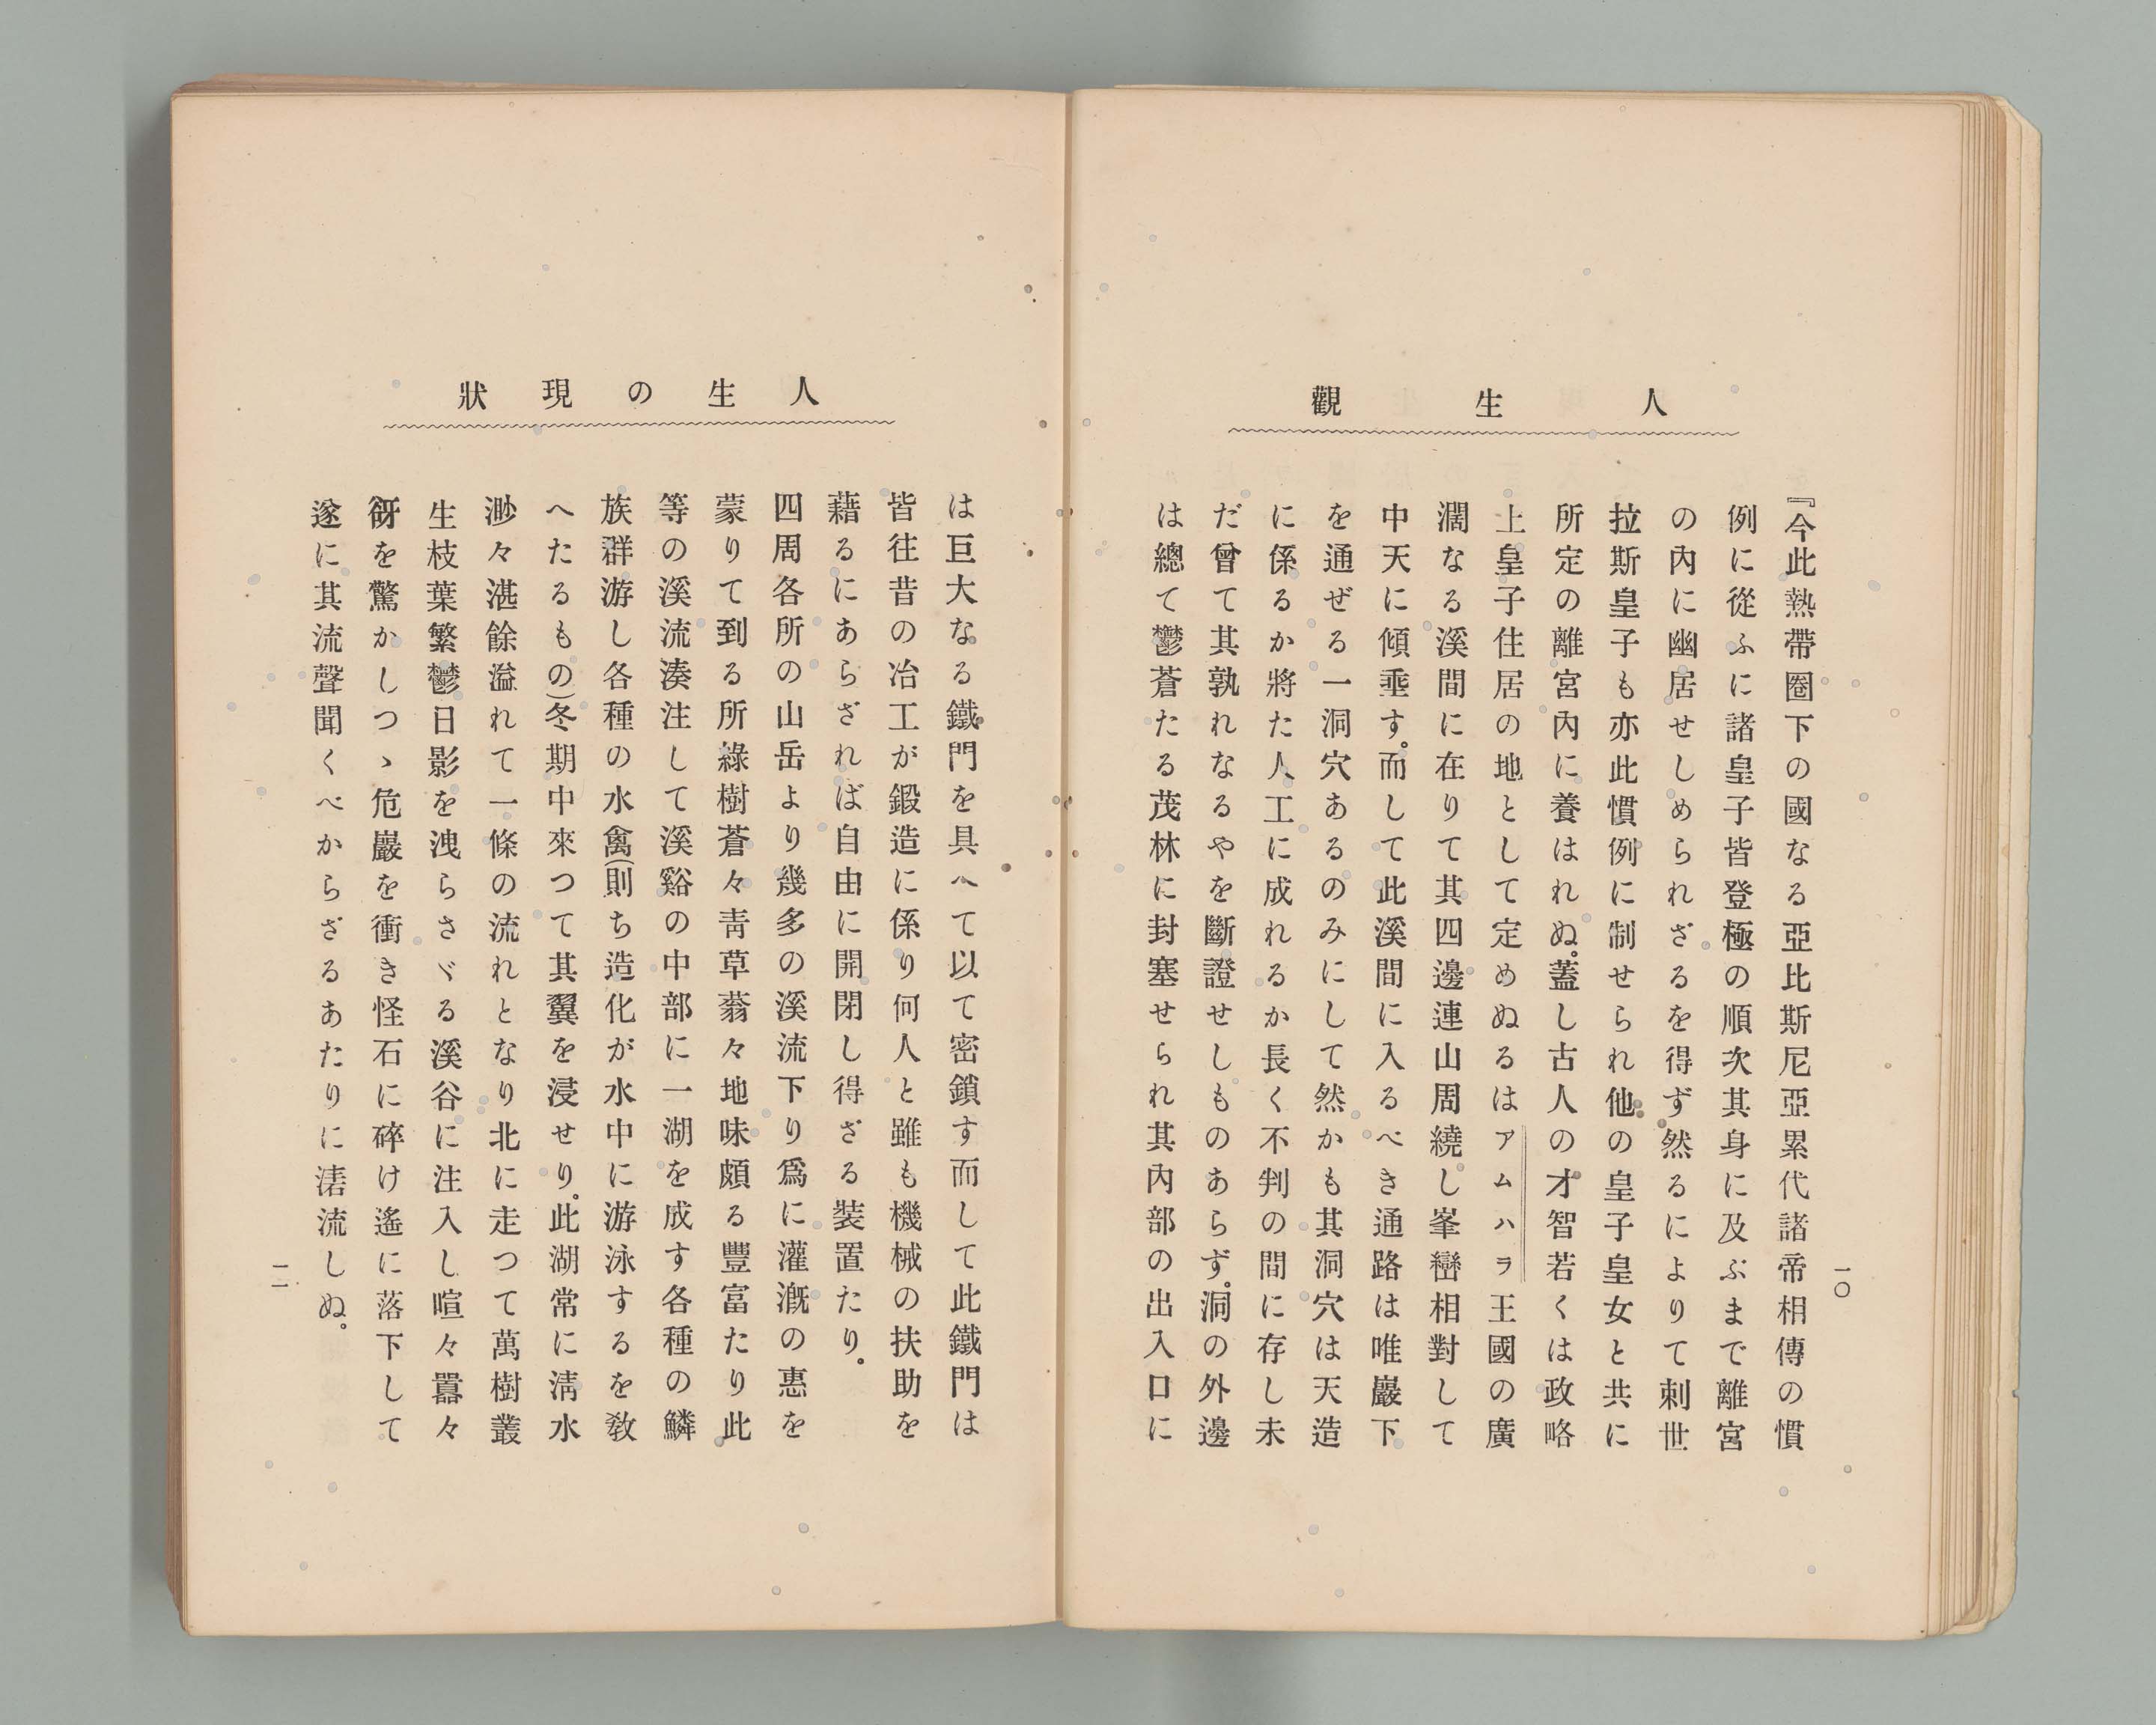 人生觀
『今此熱帶圏下の國なる亞比斯尼亞累代諸帝相傳の慣
例に從ふに諸皇子皆登極の順次其身に及ぶまで離宮
の內に幽居せしめられざるを得ず然るによりて剌世
拉斯皇子も亦此慣例に制せられ他の皇子皇女と共に
所定の離宮內に養はれぬ。蓋し古人の才智若くは政略
上皇子住居の地として定めぬるはアムハラ王國の廣
濶なる溪間に在りて其四邊連山周繞し峯巒相對して
中天に傾垂す。而して此溪間に入るべき通路は唯巖下
を通ぜる一洞穴あるのみにして然かも其洞穴は天造
に係るか將た人工に成れるか長く不判の間に存し未
だ曾て其孰れなるやを斷證せしものあらず。洞の外邊
は總て鬱蒼たる茂林に封塞せられ其內部の出入口に
一〇
人生の現狀
は巨大なる鐵門を具へて以て密鎖す而して此鐵門は
皆往昔の冶工が鍛造に係り何人と雖も機械の扶助を
藉るにあらざれば自由に開閉し得ざる裝置たり。
四周各所の山岳より幾多の溪流下り爲に灌漑の惠を
蒙りて到る所綠樹蒼々靑草蓊々地味頗る豐富たり此
等の溪流湊注して溪谿の中部に一湖を成す各種の鱗
族群游し各種の水禽(則ち造化が水中に游泳するを敎
へたるもの)冬期中來つて其翼を浸せり。此湖常に淸水
渺々湛餘溢れて一條の流れとなり北に走つて萬樹叢
生枝葉繁鬱日影を洩らさゞる溪谷に注入し喧々囂々
を驚かしつゝ危巖を衝き怪石に碎け遙に落下して
遂に其流聲聞くべからざるあたりに流しぬ。
一一